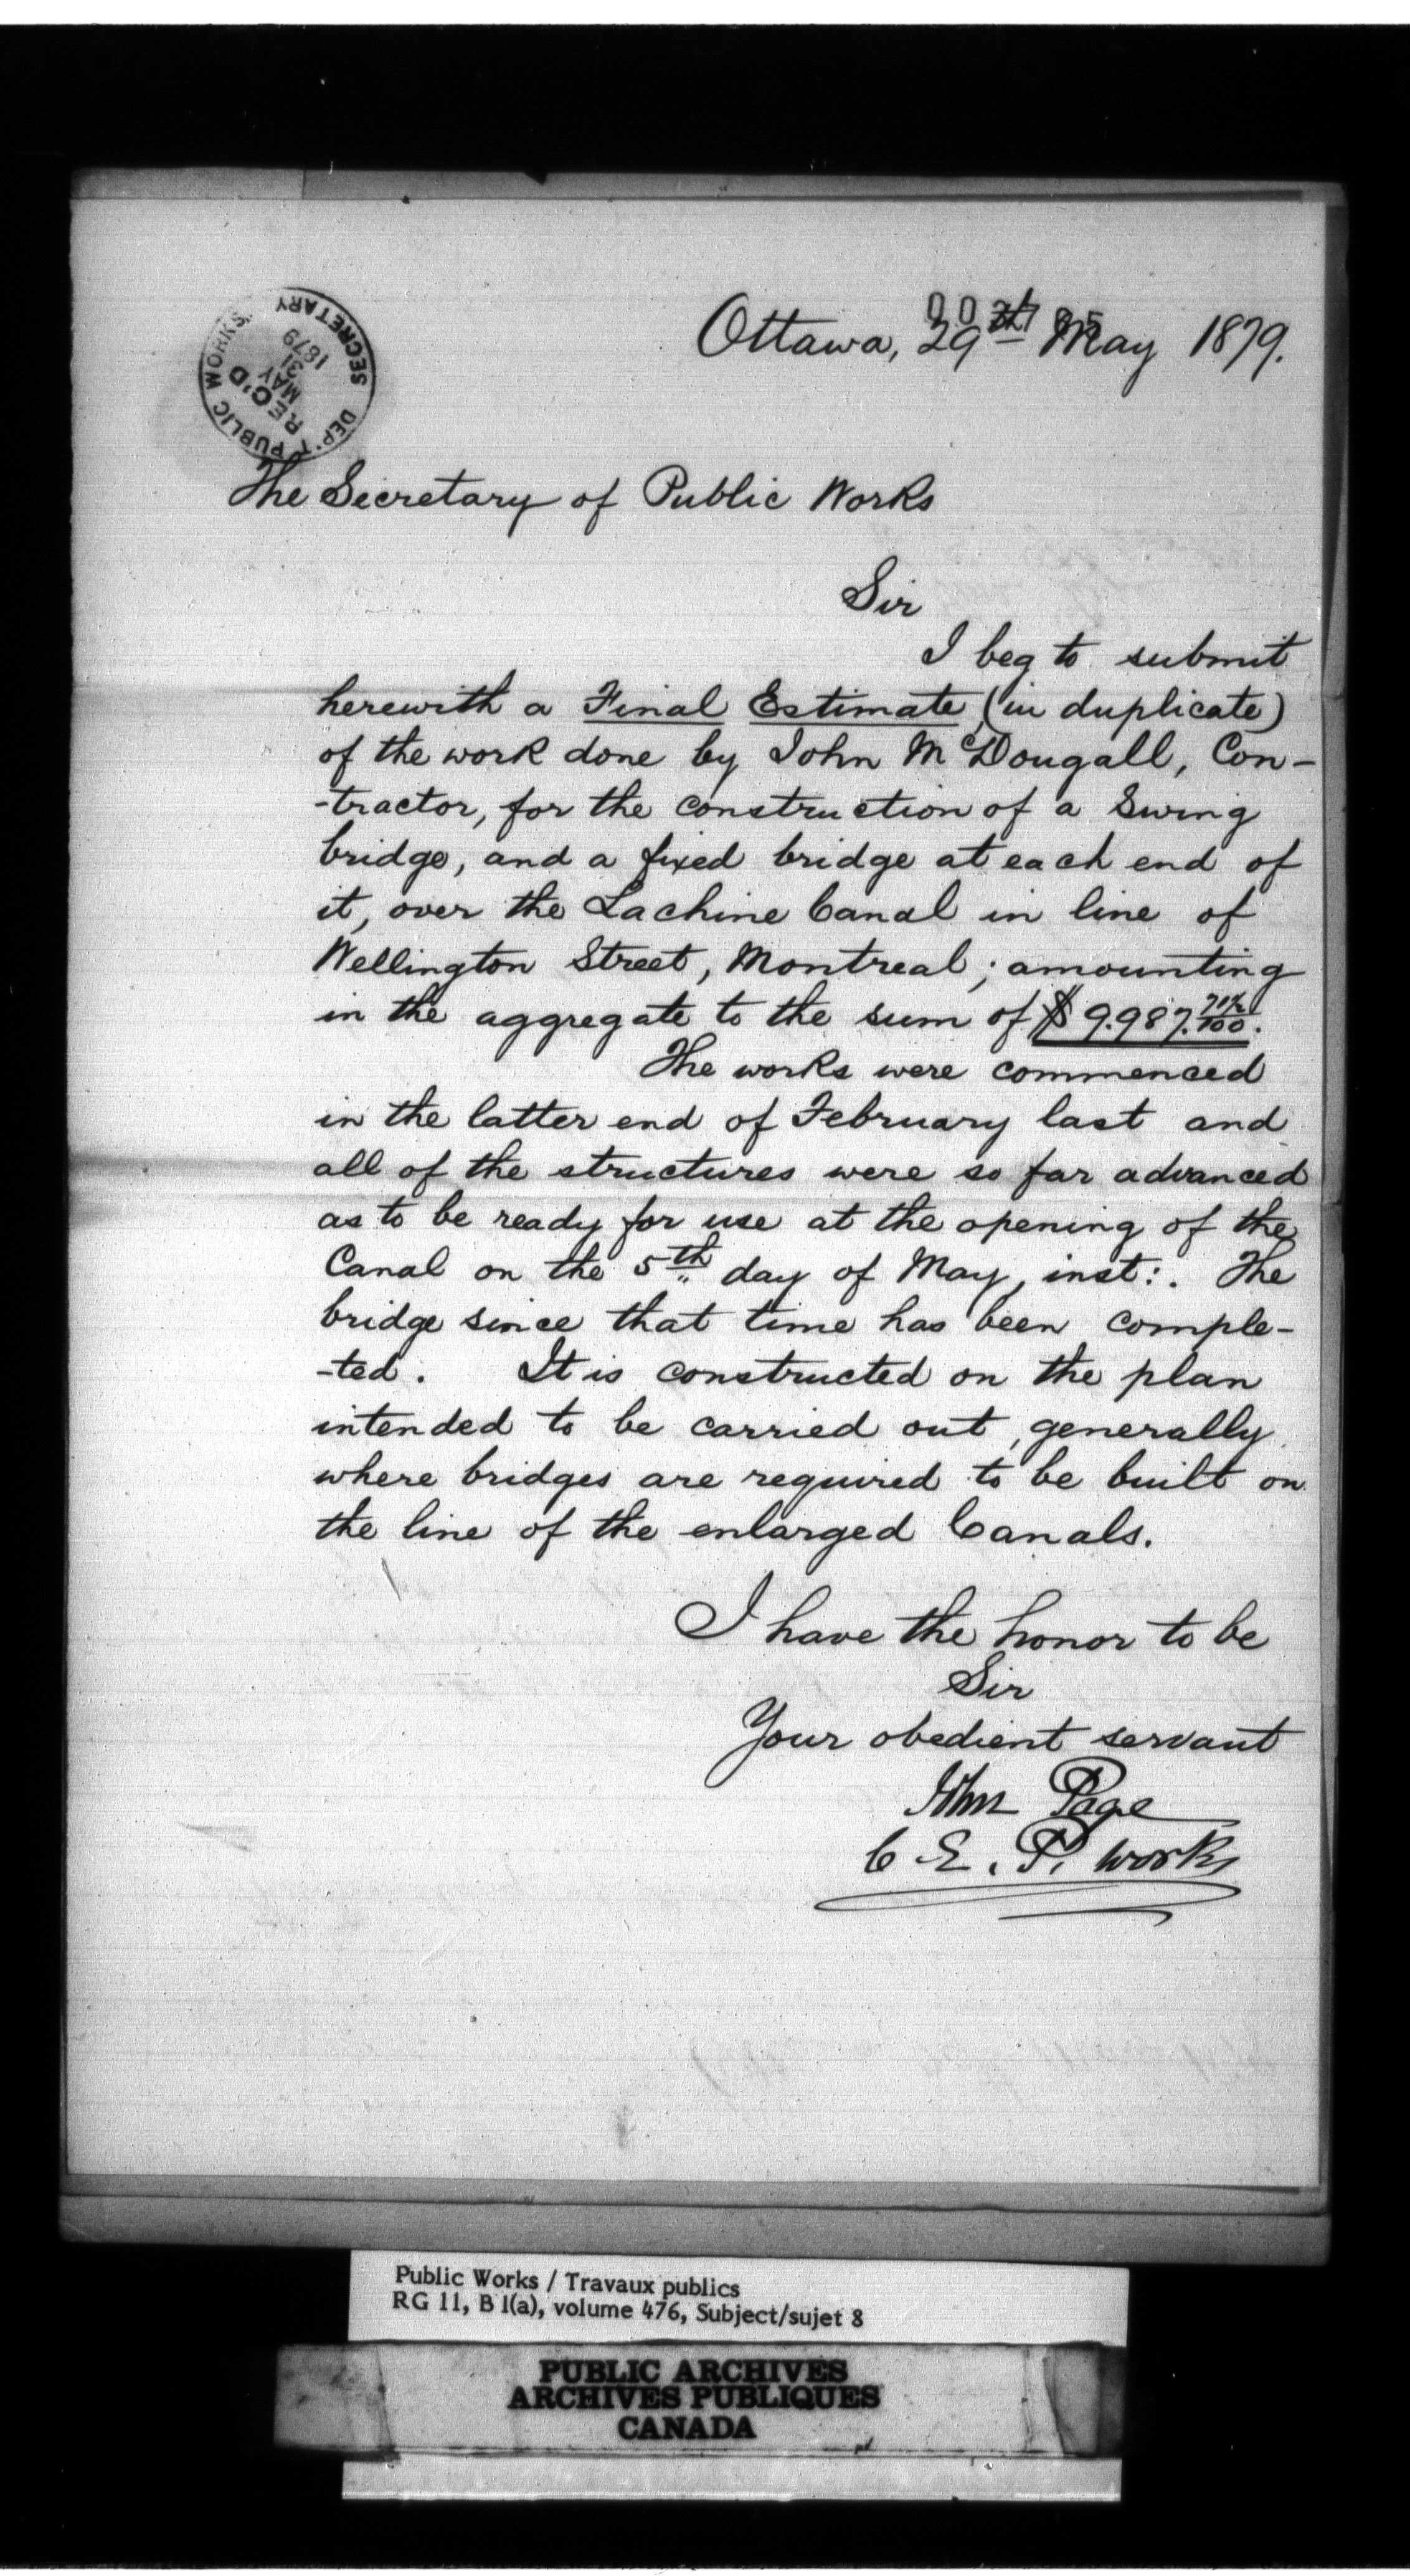 Ottawa, 29th May 1879.
DEP'T PUBLIC WORKS. SECRETARY
REC'D
MAY
31
1879
The Secretary of Public Works
Sir
I beg to submit
herewith a Final Estimate (in duplicate)
of the work done by John McDougall, Con-
-tractor, for the construction of a Swing
bridge, and a fixed bridge at each end of
it, over the Lachine Canal in line of
Wellington Street, Montreal; amounting
in the aggregate to the sum of $9.987.
The works were commenced
in the latter end of February last and
all of the structures were so far advanced
as to be ready for use at the opening of the
Canal on the 5th day of May, inst:. The
bridge since that time has been comple-
-ted. It is constructed on the plan
intended to be carried out, generally
where bridges are required to be built on
the line of the enlarged Canals.
I have the honor to be
Sir
Your obedient servant
John Page
C E. P. Works
Public Works / Travaux publics
RG 11, B 1(a), volume 476, Subject/sujet 8
PUBLIC ARCHIVES
ARCHIVES PUBLIQUES
CANADA